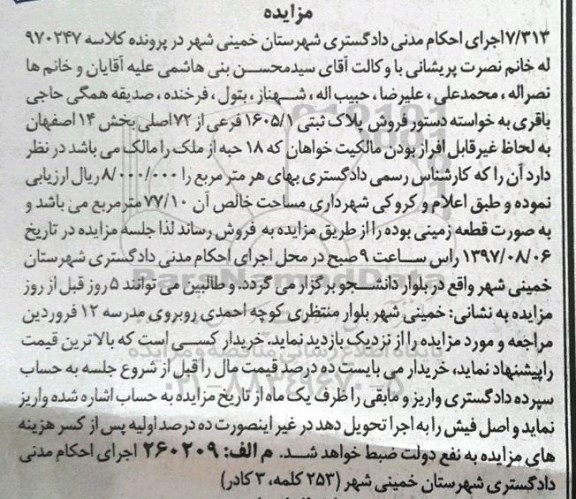 مزایده
۷/۳۱۳اجرای احکام مدنی دادگستری شهرستان خمینی شهر در پرونده کلاسه ۹۷۰۲۴۷
له خانم نصرت پریشانی با وکالت آقای سیدمحسن بنی هاشمی علیه آقایان و خانم ها
نصراله ، محمدعلی ، علیرضا ، حبیب اله ، شهناز ، بتول ، فرخنده ، صدیقه همگی حاجی
باقری به خواسته دستور فروش پلاک ثبتی ۱۶۰۵/۱ فرعی از ۷۲اصلی بخش ۱۴ اصفهان
به لحاظ غیرقابل افراز بودن مالکیت خواهان که ۱۸ حبه از ملک را مالک می باشد در نظر
دارد آن را که کارشناس رسمی دادگستری بهای هر متر مربع را ۸/۰۰۰/۰۰۰ ریال ارزیابی
نموده و طبق اعلام و کروکی شهرداری مساحت خالص آن ۷۷/۱۰ مترمربع می باشد و
به صورت قطعه زمینی بوده را از طریق مزایده به فروش رساند لذا جلسه مزایده در تاریخ
۱۳۹۷/۰۸/۰۶ راس ساعت ۹ صبح در محل اجرای احکام مدنی دادگستری شهرستان
خمینی شهر واقع در بلوار دانشجو برگزار می گردد. و طالبین می توانند ۵ روز قبل از روز
مزایده به نشانی: خمینی شهر بلوار منتظری کوچه احمدی روبروی مدرسه ۱۲ فروردین
مراجعه و مورد مزایده را از نزدیک بازدید نماید. خریدار کسی است که بالاترین قیمت
را پیشنهاد نماید، خریدار می بایست ده درصد قیمت مال را قبل از شروع جلسه به حساب
سپرده دادگستری واریز و مابقی را ظرف یک ماه از تاریخ مزایده به حساب اشاره شده واریز
نماید و اصل فیش را به اجرا تحویل دهد در غیر اینصورت ده درصد اولیه پس از کسر هزینه
های مزایده به نفع دولت ضبط خواهد شد. م الف: ۲۶۰۲۰۹ اجرای احکام مدنی
دادگستری شهرستان خمینی شهر (۲۵۳ کلمه، ۳ کادر)
ParsNamadData